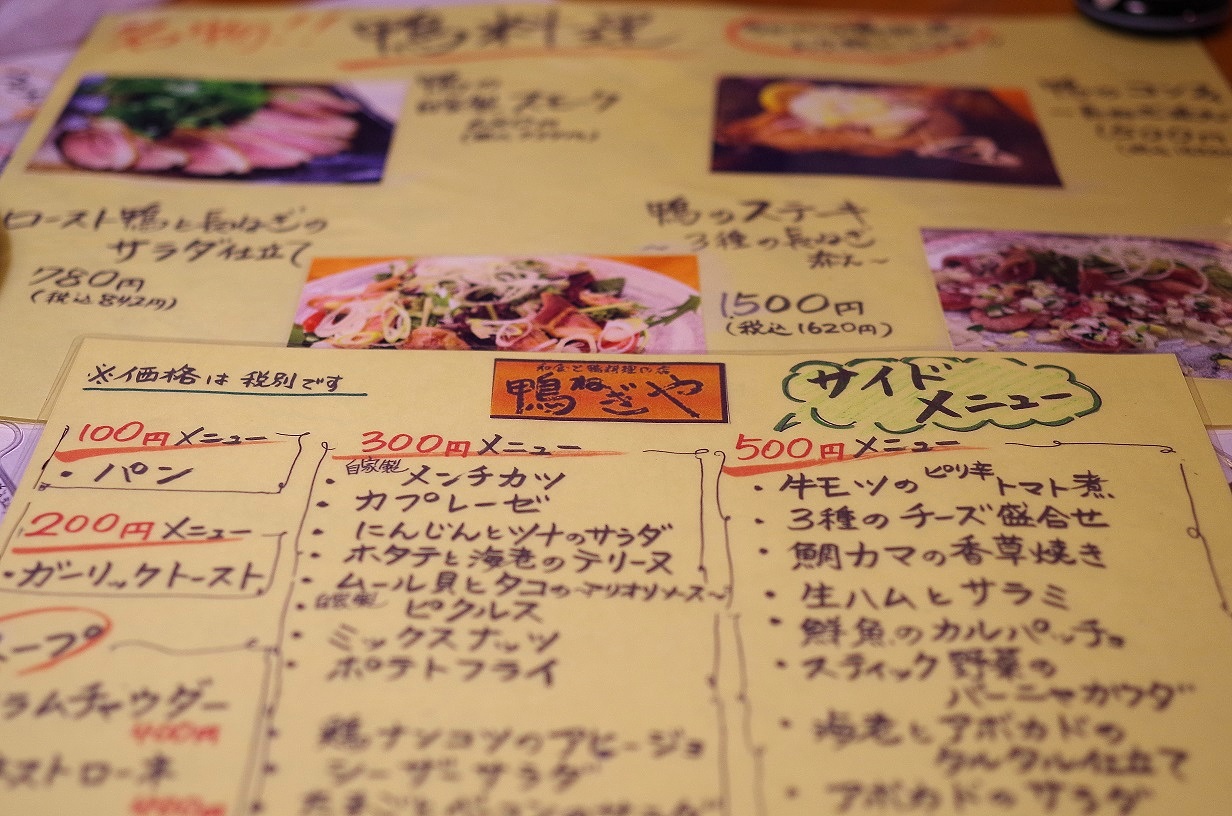 名物!! 鴨料理
鴨の
自家製 スモーク
ロースト鴨と長ねぎの
サラダ仕立て
780円
(税込842円)
鴨のステーキ
~3種の長ねぎ
添え~
1500円
(税込1620円)
※価格は税別です
鴨ねぎや
サイド
メニュー
100円メニュー
・パン
200円メニュー
・ガーリックトースト
スープ
ラムチャウダー
400円
ネストローネ
300円メニュー
・自家製メンチカツ
・カプレーゼ
・にんじんとツナのサラダ
・ホタテと海老のテリーヌ
・ムール貝とタコの~アリオリソース~
・自家製ピクルス
・ミックスナッツ
・ポテトフライ
鶏ナンコツのアヒージョ
・シーザーサラダ
500円メニュー
・牛モツのピリ辛トマト煮
・3種のチーズ盛合せ
・鯛カマの香草焼き
・生ハムとサラミ
・鮮魚のカルパッチョ
・スティック野菜の
バーニャカウダ
・海老とアボカドの
タルタル仕立て
・アボカドのサラダ